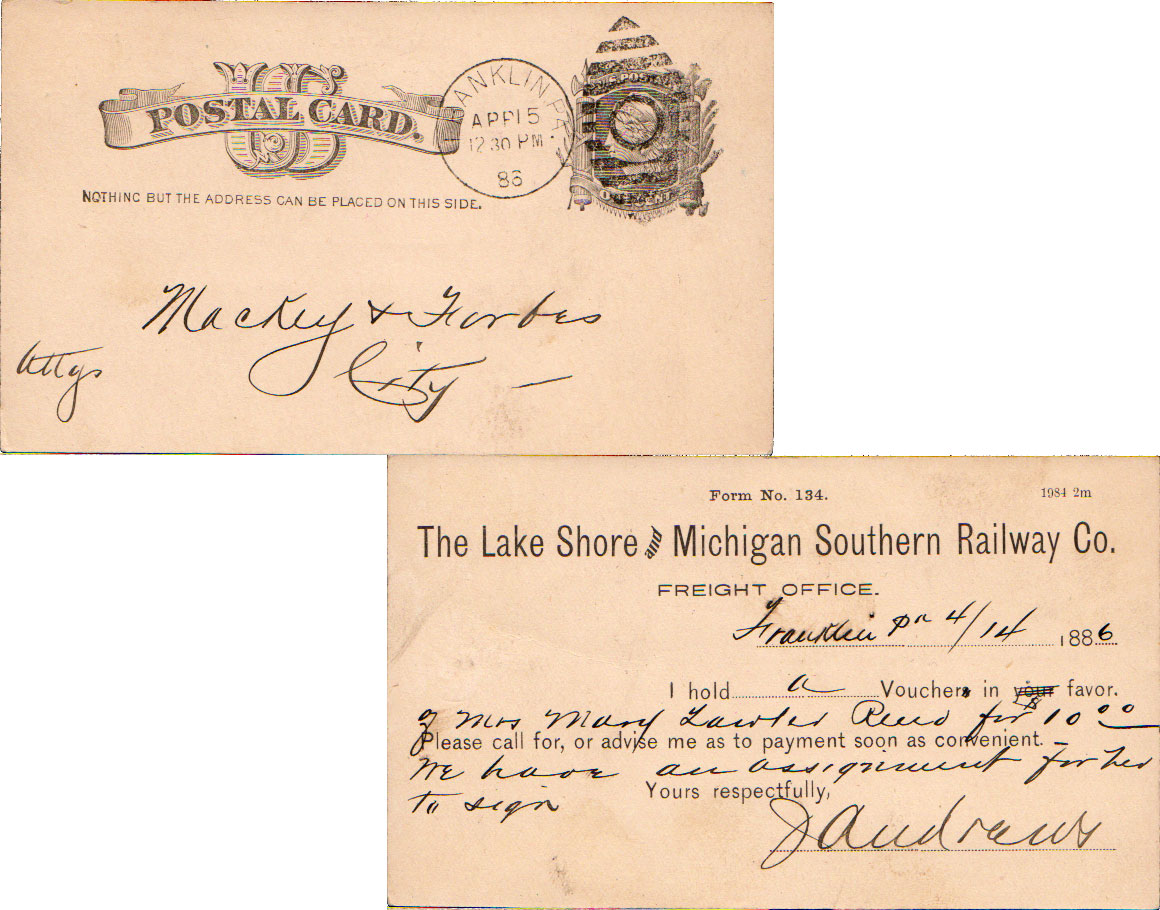 U S
POSTAL CARD.
NOTHING BUT THE ADDRESS CAN BE PLACED ON THIS SIDE.
ANKLIN PA.
APR 15
12 30 PM
86
U.S. POSTAL
ONE CENT
Mackey & Forbes
Attys
City
Form No. 134.
1984 2m
The Lake Shore and Michigan Southern Railway Co.
FREIGHT OFFICE.
Franklin Pa 4/14 1886
I hold a Vouchers in your favor.
of Mrs Mary Lawler for 10 00
Please call for, or advise me as to payment soon as convenient.
We have an assignment for her
to sign
Yours respectfully,
J Andrews